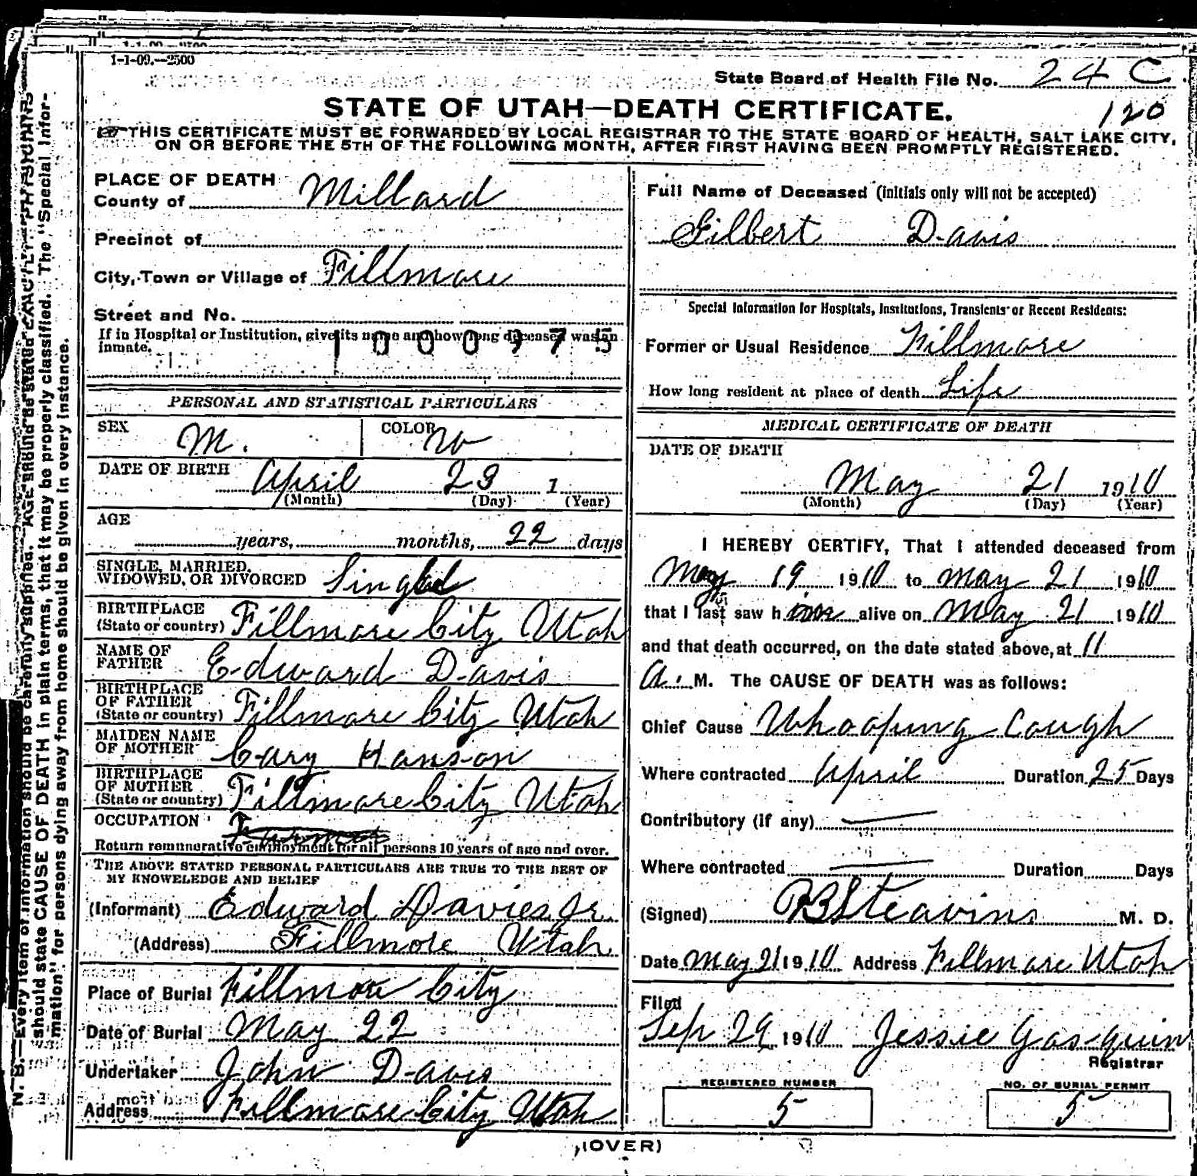 1-1-09.—2500
State Board of Health File No. 24 C
120
STATE OF UTAH—DEATH CERTIFICATE.
THIS CERTIFICATE MUST BE FORWARDED BY LOCAL REGISTRAR TO THE STATE BOARD OF HEALTH, SALT LAKE CITY,
ON OR BEFORE THE 5TH OF THE FOLLOWING MONTH, AFTER FIRST HAVING BEEN PROMPTLY REGISTERED.
PLACE OF DEATH
County of Millard
Precinct of
City, Town or Village of Fillmore
Street and No.
If in Hospital or Institution, give its name and how long deceased was an
inmate.
1000975
PERSONAL AND STATISTICAL PARTICULARS
SEX M. COLOR W
DATE OF BIRTH April 29 1
(Month) (Day) (Year)
AGE
years, months, 22 days
SINGLE, MARRIED,
WIDOWED, OR DIVORCED Single
BIRTHPLACE
(State or country) Fillmore City Utah
NAME OF
FATHER Edward Davis
BIRTHPLACE
OF FATHER
(State or country) Fillmore City Utah
MAIDEN NAME
OF MOTHER Cary Hanson
BIRTHPLACE
OF MOTHER
(State or country) Fillmore City Utah
OCCUPATION
Return remunerative employment for all persons 10 years of age and over.
THE ABOVE STATED PERSONAL PARTICULARS ARE TRUE TO THE BEST OF
MY KNOWELEDGE AND BELIEF
(Informant) Edward Davies Jr.
(Address) Fillmore Utah
Place of Burial Fillmore City
Date of Burial May 22
Undertaker John Davis
Address Fillmore City Utah
Full Name of Deceased (initials only will not be accepted)
Gilbert Davis
Special Information for Hospitals, Institutions, Transients or Recent Residents:
Former or Usual Residence Fillmore
How long resident at place of death Life
MEDICAL CERTIFICATE OF DEATH
DATE OF DEATH
May 21 1910
(Month) (Day) (Year)
I HEREBY CERTIFY, That I attended deceased from
May 19 1910 to May 21 1910
that I last saw him alive on May 21 1910
and that death occurred, on the date stated above, at 11
A. M. The CAUSE OF DEATH was as follows:
Chief Cause Whooping Cough
Where contracted April Duration 25 Days
Contributory (if any) —
Where contracted — Duration Days
(Signed) M. D.
Date May 21 1910 Address Fillmore Utah
Filed
Sep 29 1910 Jessie Gasquin
Registrar
REGISTERED NUMBER
5
NO. OF BURIAL PERMIT
5
(OVER)
N. B.—Every item of information should be carefully supplied. AGE should be stated EXACTLY. PHYSICIANS
should state CAUSE OF DEATH in plain terms, that it may be properly classified. The "Special Infor-
mation" for persons dying away from home should be given in every instance.